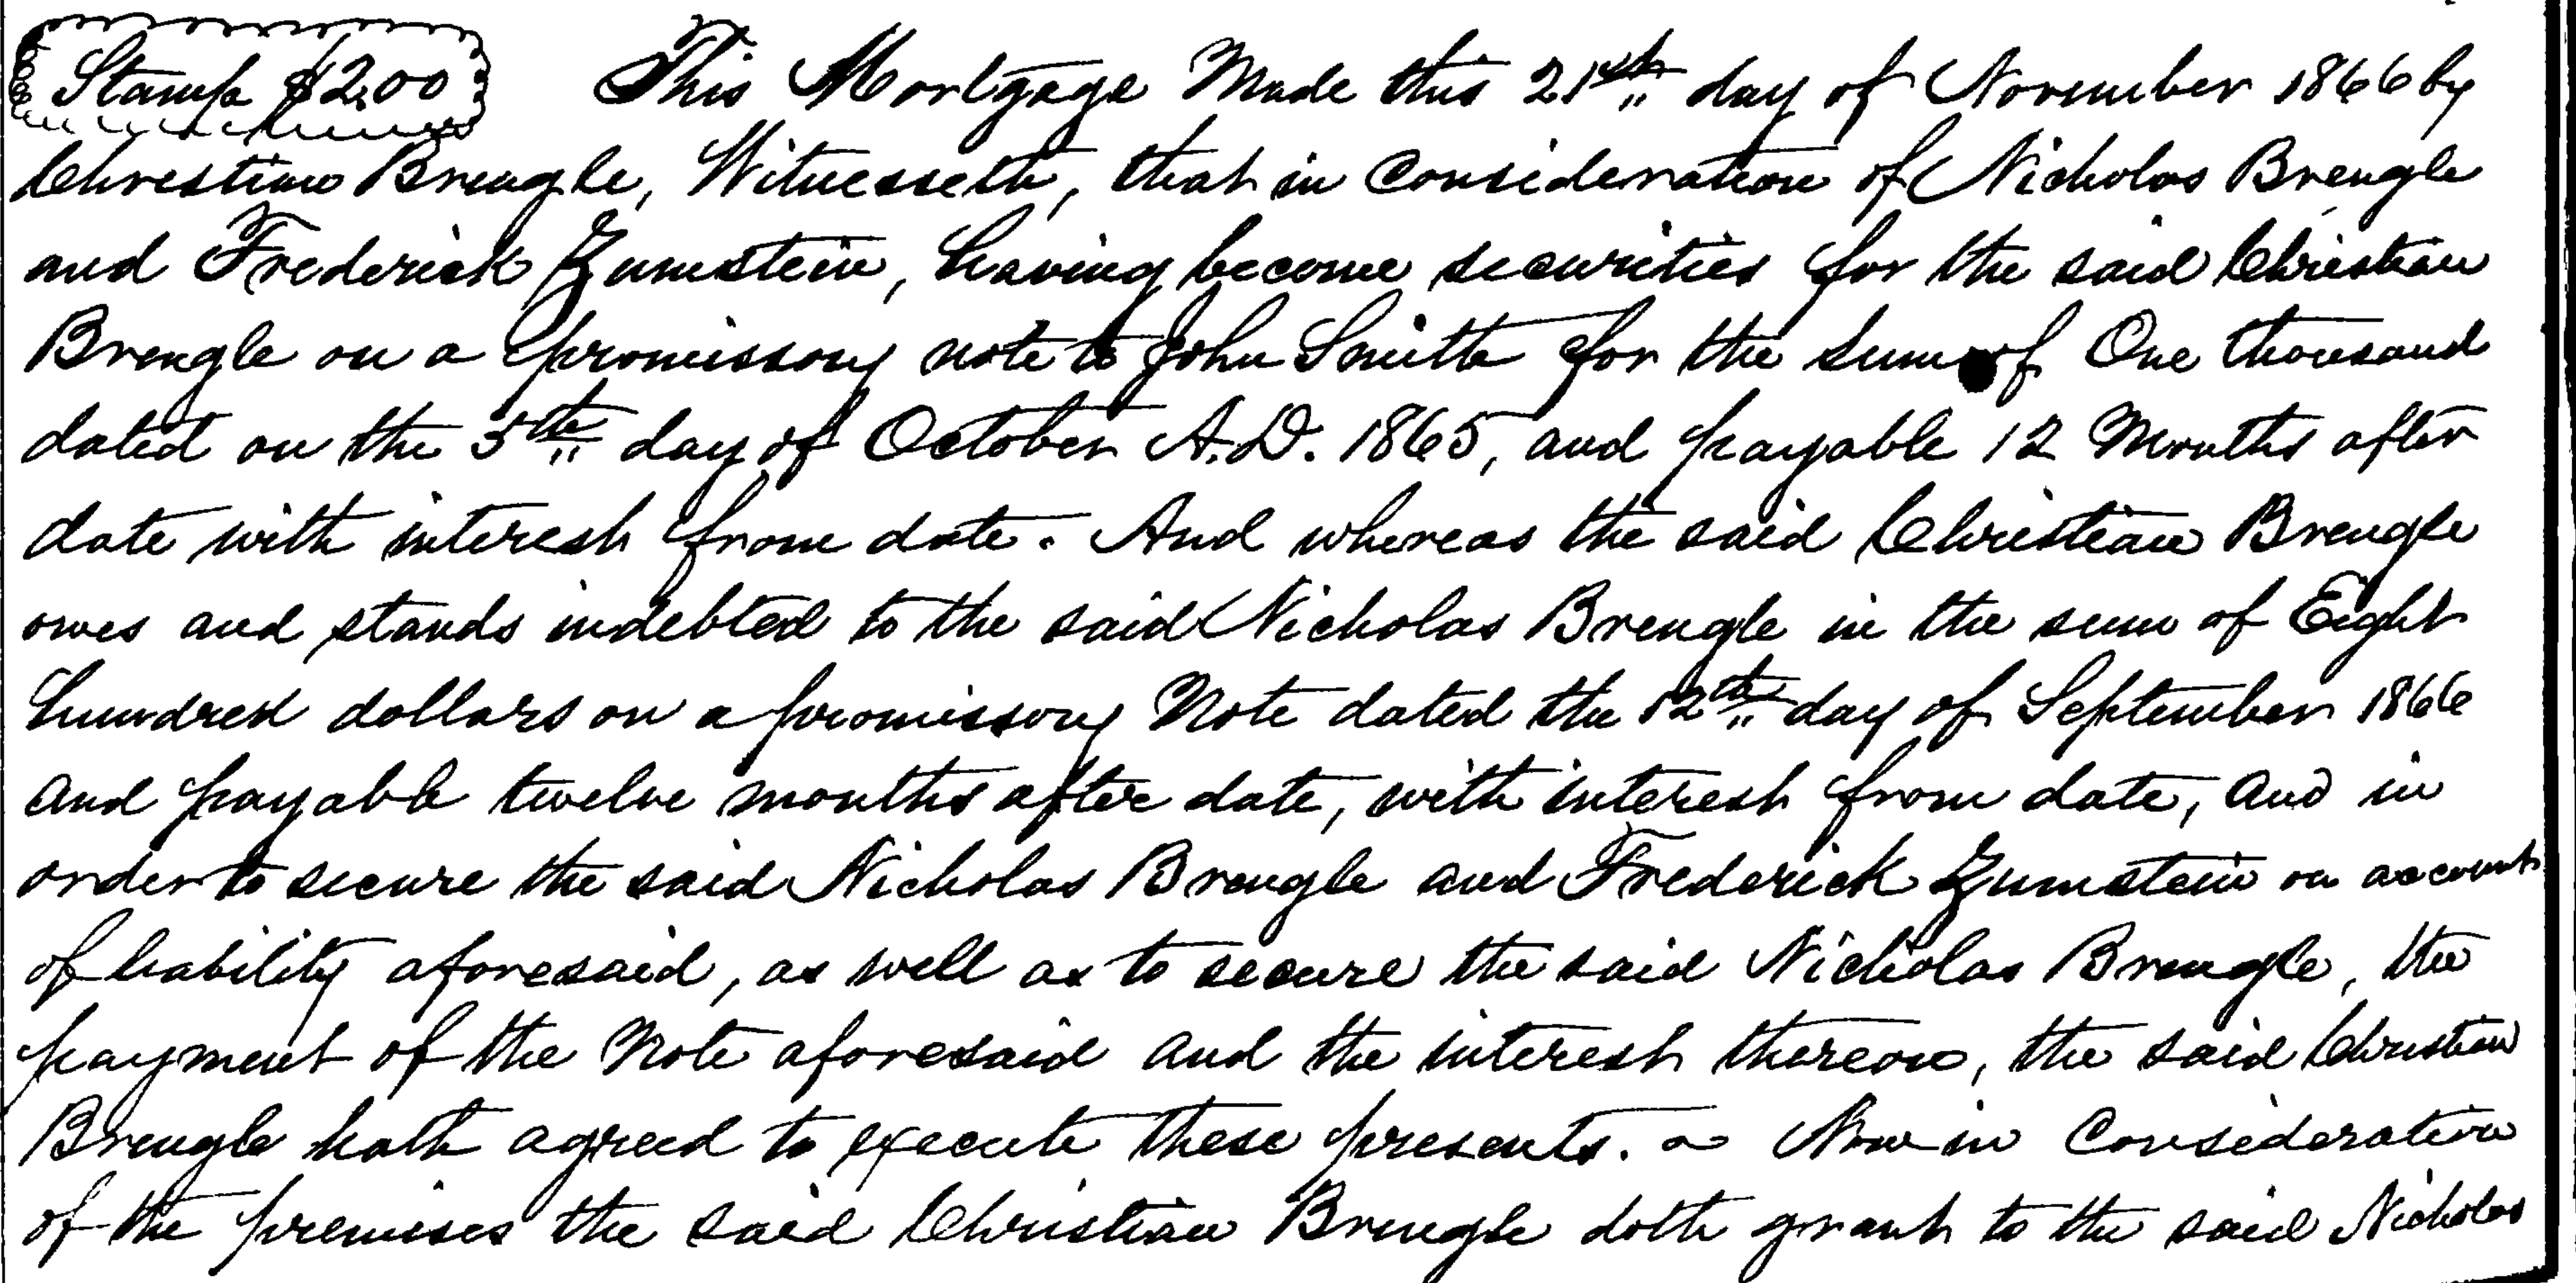 Stamp $2.00 This Mortgage Made this 21st day of November 1866 by
Christian Brengle, Witnesseth, that in Consideration of Nicholas Brengle
and Frederick Zumstein, having become securities for the said Christian
Brengle on a promissory note to John Smith for the sum of One thousand
dated on the 5th day of October A.D. 1865, and payable 12 Months after
date with interest from date. And whereas the said Christian Brengle
owes and stands indebted to the said Nicholas Brengle in the sum of Eight
hundred dollars on a promissory Note dated the 12th day of September 1866
and payable twelve months after date, with interest from date, and in
order to secure the said Nicholas Brengle and Frederick Zumstein on account
of liability aforesaid, as well as to secure the said Nicholas Brengle, the
payment of the Note aforesaid and the interest thereon, the said Christian
Brengle hath agreed to execute these presents. Now in Consideration
of the premises the said Christian Brengle doth grant to the said Nicholas